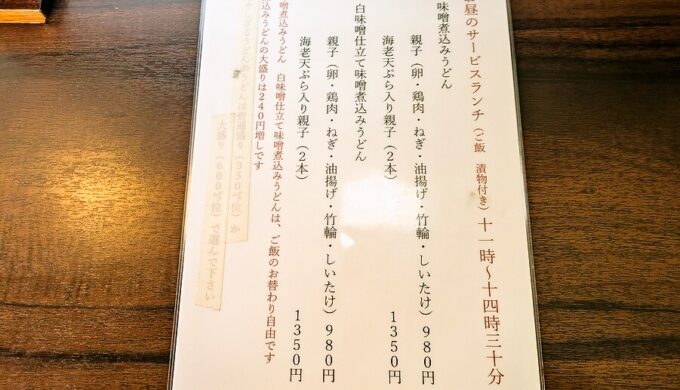 お昼のサービスランチ（ご飯 漬物付き）十一時～十四時三十分
味噌煮込みうどん
親子（卵・鶏肉・ねぎ・油揚げ・竹輪・しいたけ）980円
海老天ぷら入り親子（2本） 1350円
白味噌仕立て味噌煮込みうどん
親子（卵・鶏肉・ねぎ・油揚げ・竹輪・しいたけ）980円
海老天ぷら入り親子（2本） 1350円
噌煮込みうどん 白味噌仕立て味噌煮込みうどんは、ご飯のお替わり自由です
込みうどんの大盛りは240円増しです
うどんは普通盛り（350㌘位）か
大盛り（600㌘位）で選んで下さい